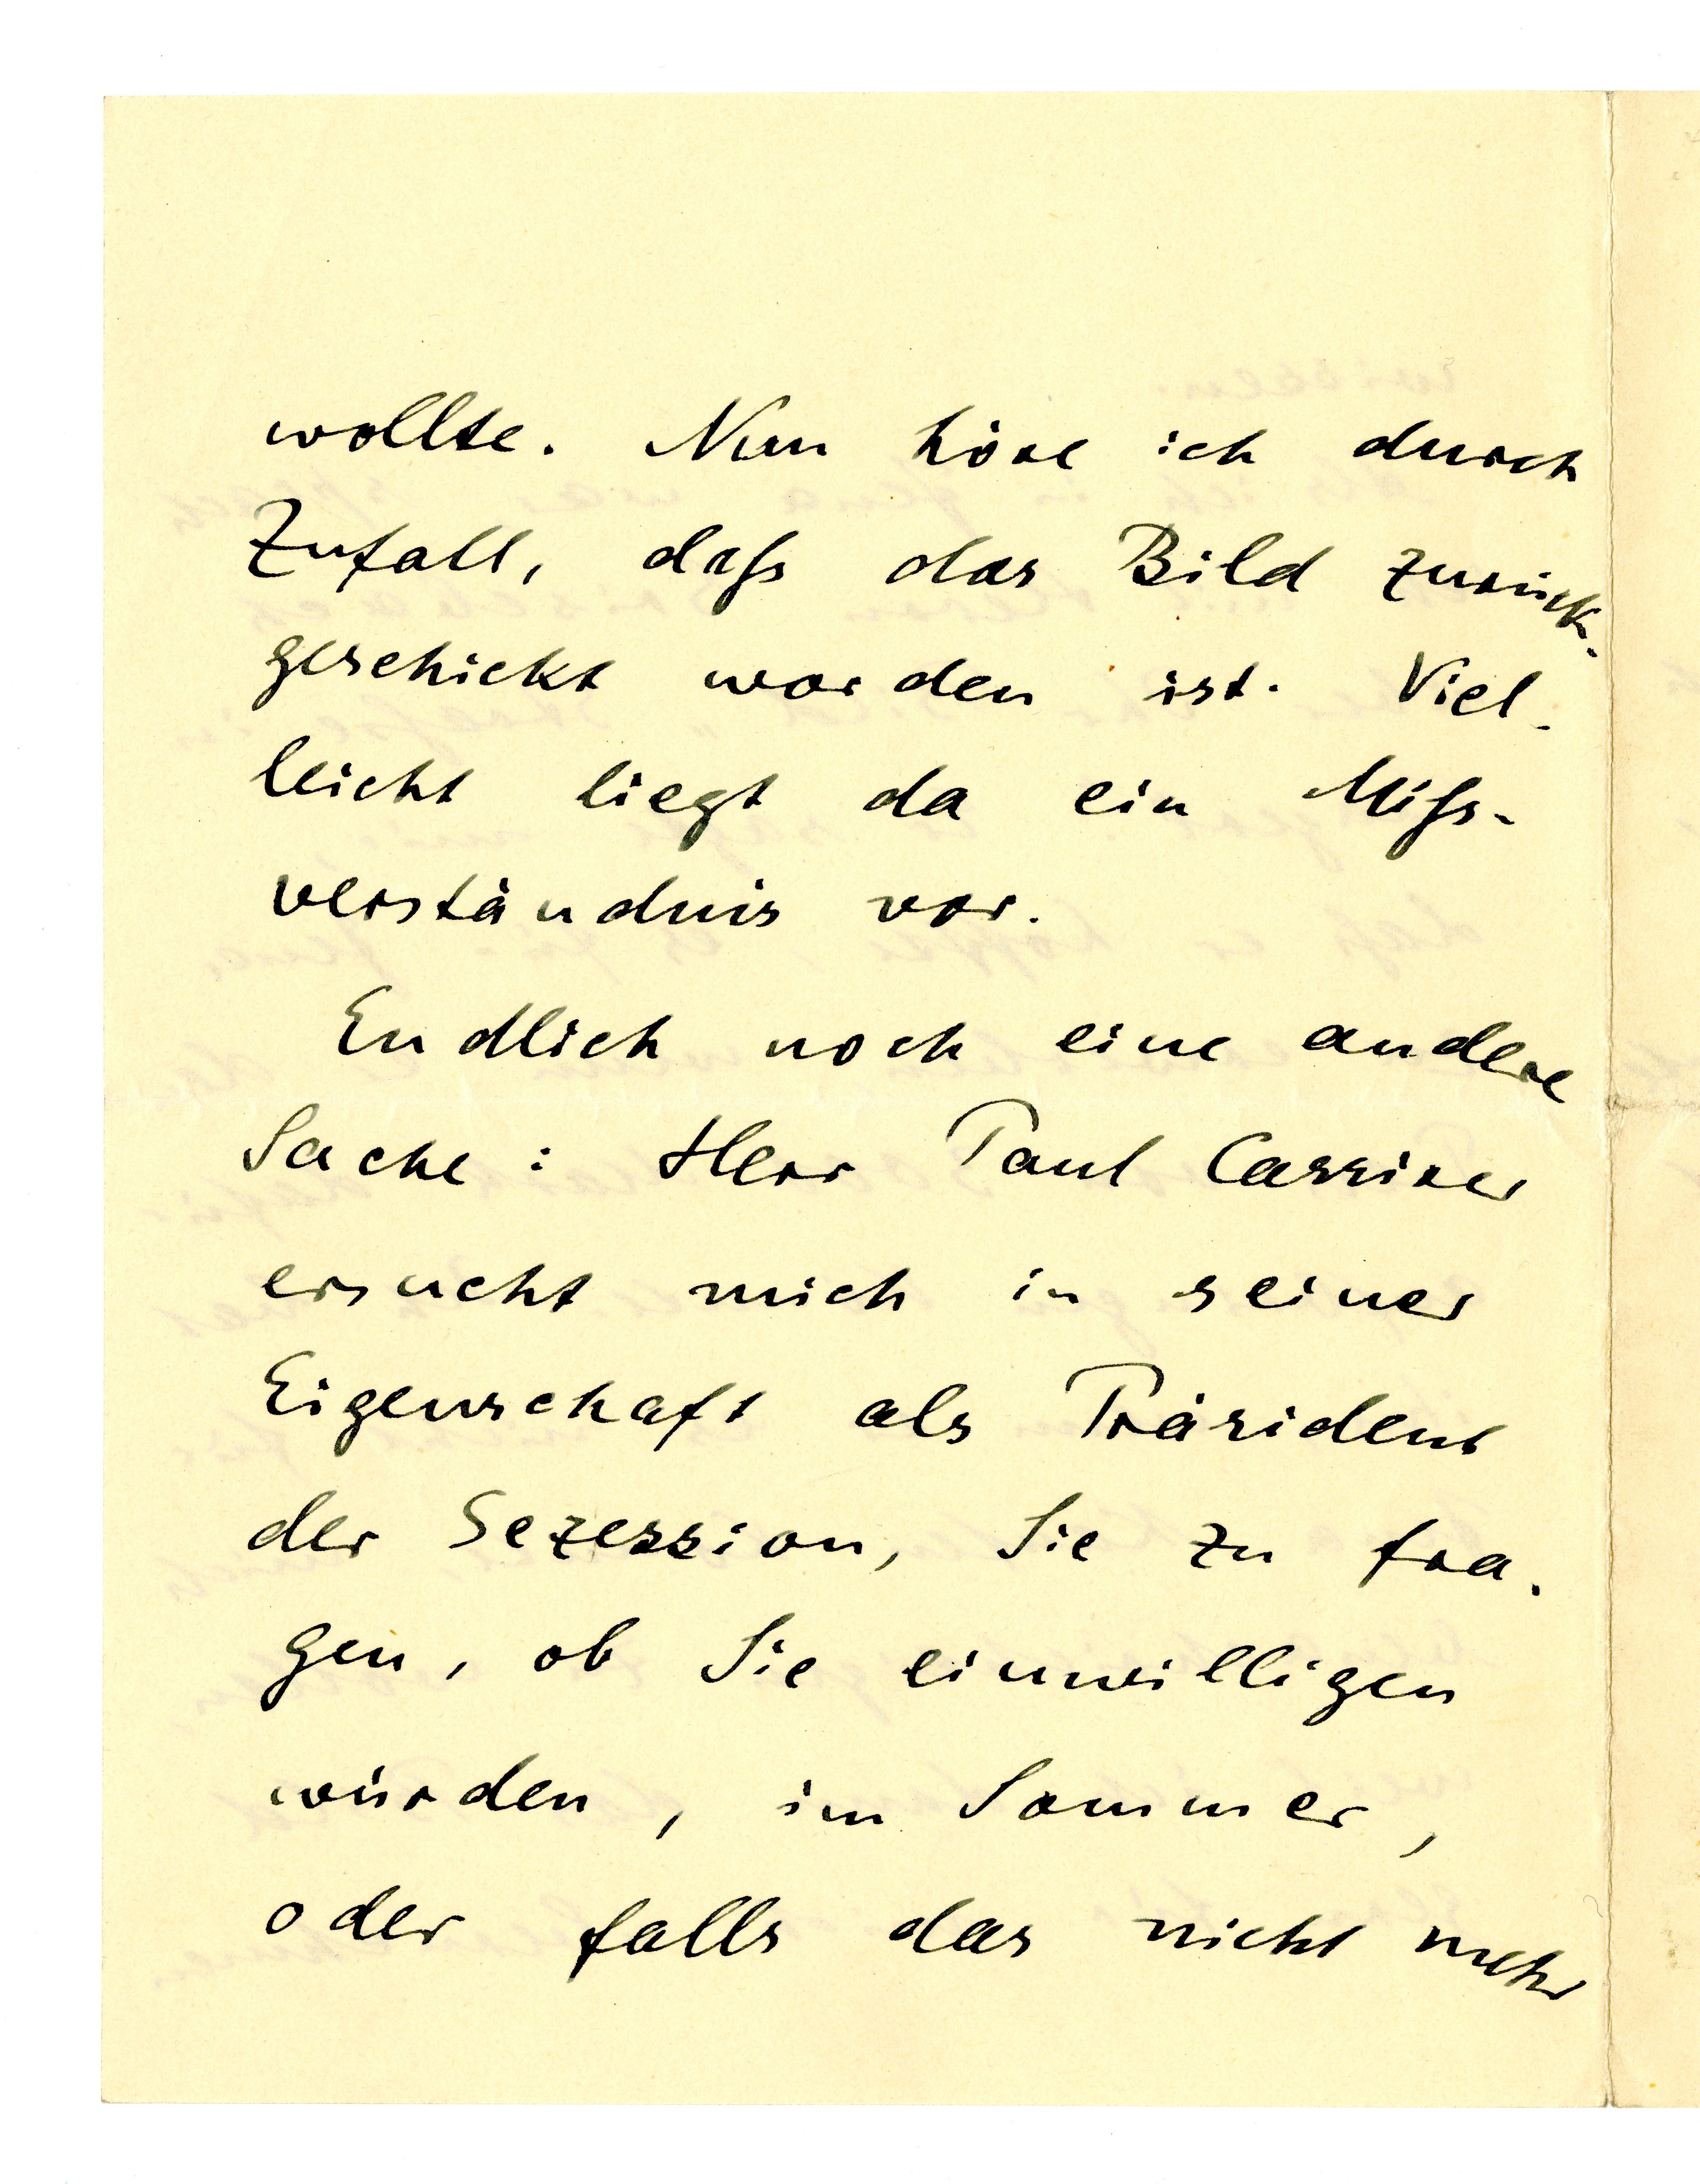 wollte. Nun höre ich durch
Zufall, daſs das Bild zurück-
geschickt worden ist. Viel-
leicht liegt da ein Miſs-
verständnis vor.
Endlich noch eine andere
Sache: Herr Paul Cassirer
ersucht mich in seiner
Eigenschaft als Präsident
der Sezession, Sie zu fra-
gen, ob Sie einwilligen
würden, im Sommer,
oder falls das nicht mehr